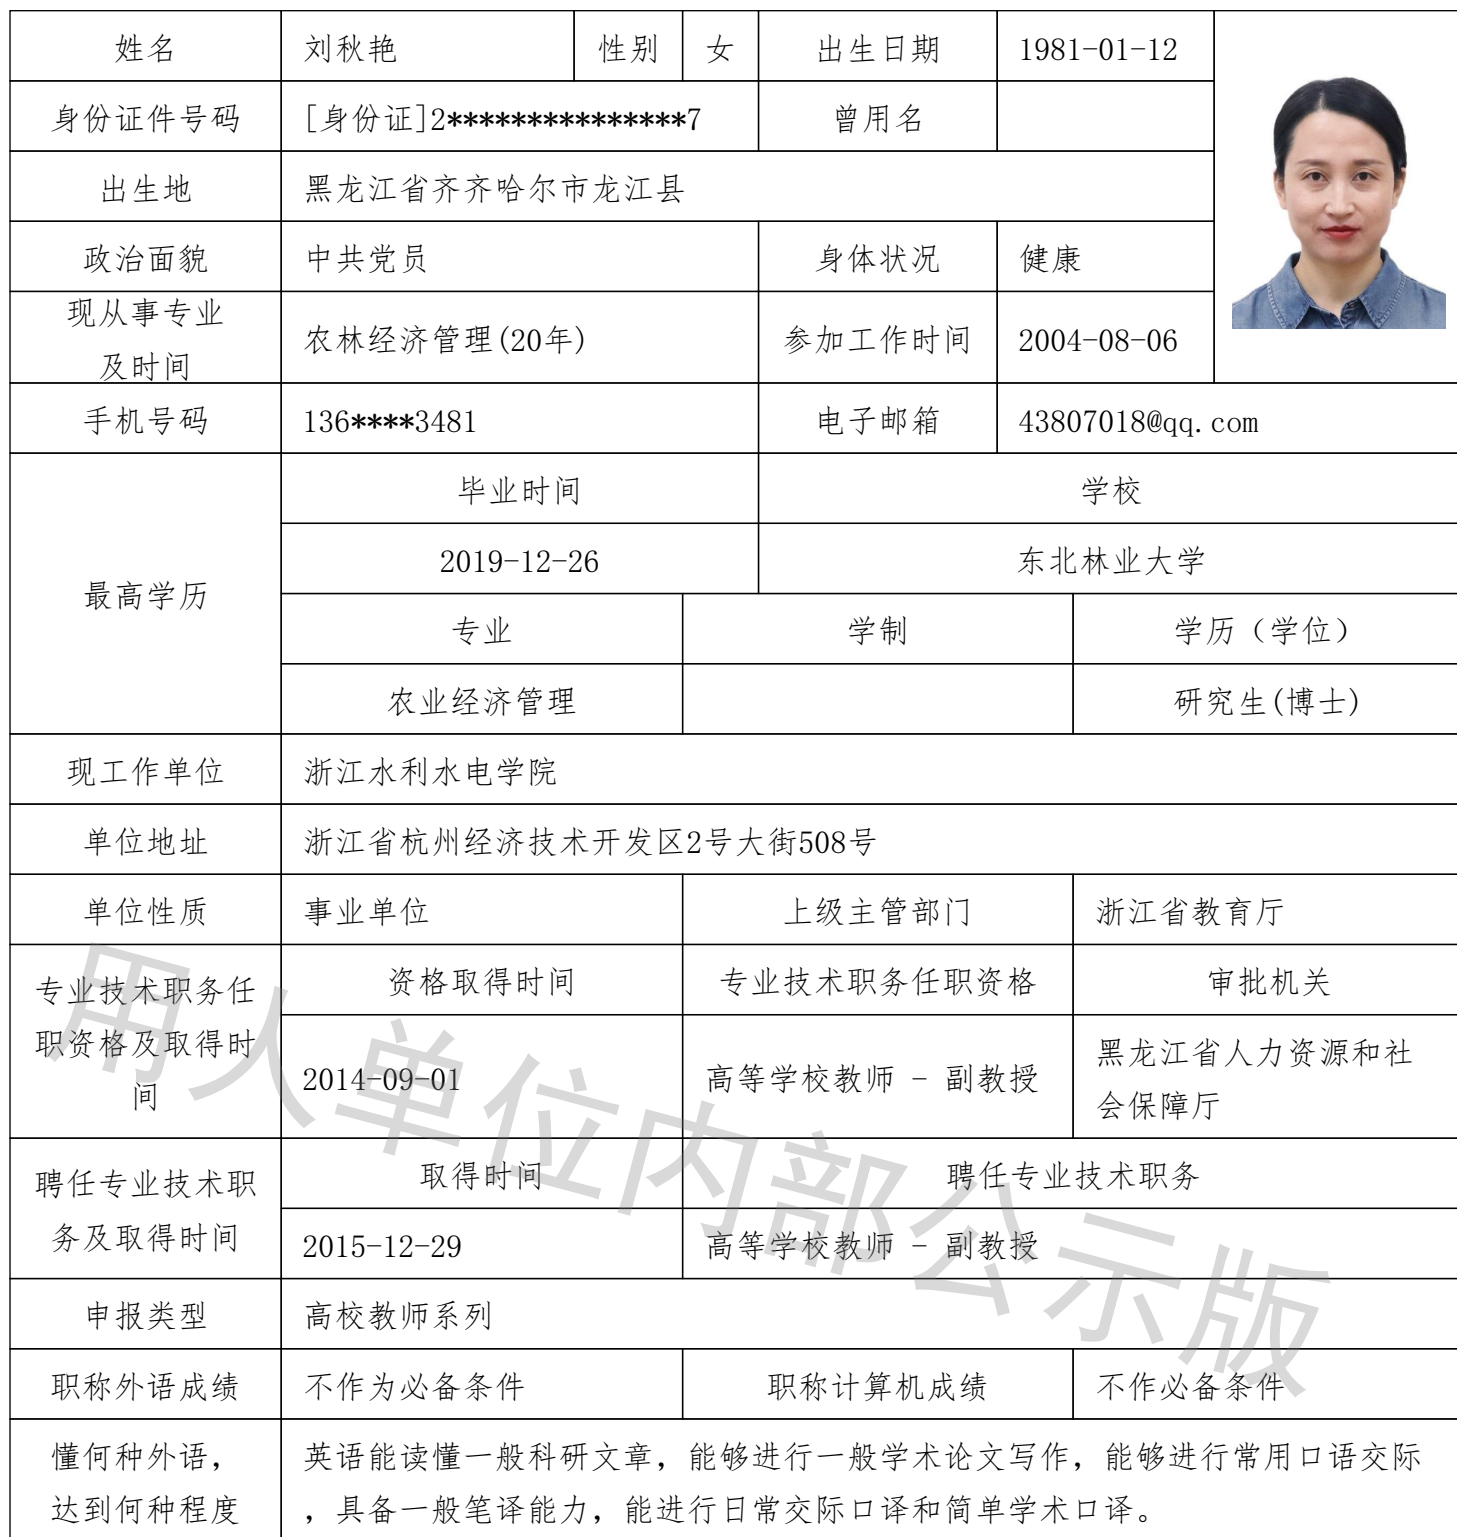 姓名 刘秋艳 性别 女 出生日期 1981-01-12
身份证件号码 [身份证]2***************7 曾用名
出生地 黑龙江省齐齐哈尔市龙江县
政治面貌 中共党员 身体状况 健康
现从事专业
及时间
农林经济管理(20年) 参加工作时间 2004-08-06
手机号码 136****3481 电子邮箱 43807018@qq.com
最高学历
毕业时间 学校
2019-12-26 东北林业大学
专业 学制 学历（学位）
农业经济管理 研究生(博士)
现工作单位 浙江水利水电学院
单位地址 浙江省杭州经济技术开发区2号大街508号
单位性质 事业单位 上级主管部门 浙江省教育厅
专业技术职务任
职资格及取得时
间
资格取得时间 专业技术职务任职资格 审批机关
2014-09-01 高等学校教师 - 副教授 黑龙江省人力资源和社
会保障厅
聘任专业技术职
务及取得时间
取得时间 聘任专业技术职务
2015-12-29 高等学校教师 - 副教授
申报类型 高校教师系列
职称外语成绩 不作为必备条件 职称计算机成绩 不作必备条件
懂何种外语，
达到何种程度
英语能读懂一般科研文章，能够进行一般学术论文写作，能够进行常用口语交际
，具备一般笔译能力，能进行日常交际口译和简单学术口译。
用人单位内部公示版